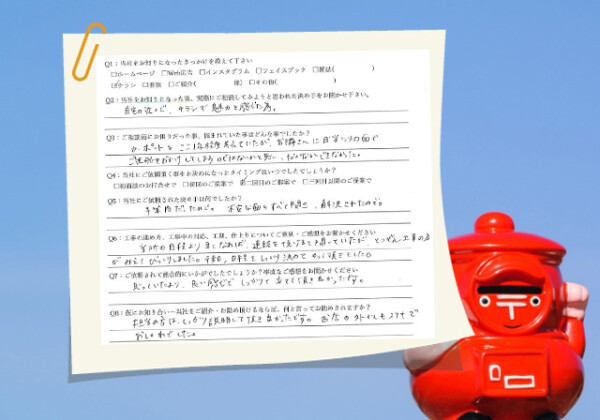 Q1：当社をお知りになったきっかけを教えて下さい
□ホームページ □Web広告 □インスタグラム □フェイスブック □雑誌( )
☑チラシ □看板 □ご紹介( 様) □その他( )
Q2：当社をお知りになった後、実際にご相談してみようと思われた決め手をお聞かせ下さい。
自宅の近くで、チラシで魅力を感じた為。
Q3：ご相談前にお困りだった事、悩まれていた事はどんな事でしたか？
カーポートを ここ1年程 考えていたが、お隣さんに
ご迷惑をおかけしてしまう
Q4：当社にご依頼頂く事をお決めになったタイミングはいつでしたでしょうか？
□初面談のお打合せで □初回のご提案で 第二回のご提案で □三回目以降のご提案で
Q5：当社にご依頼された決め手は何でしたか？
予算内だったため。 不安な面もすべて聞き、解決されたので。
Q6：工事の進め方、工事中の対応、工期、仕上りについてご意見・ご感想をお聞かせください
連絡を頂けると
日程を しっかり決めて
Q7：ご依頼されて総合的にいかがでしたでしょうか？率直なご感想をお聞かせください
思っていたより、良い感じで しっかりと 立てて頂き良かったです。
Q8：仮にお知り合いへ当社をご紹介・お勧め頂けるならば、何と言ってお勧めされますか？
担当の方は、しっかり説明して頂き良かったです。 お店の外かんも ステキで
おしゃれでした。